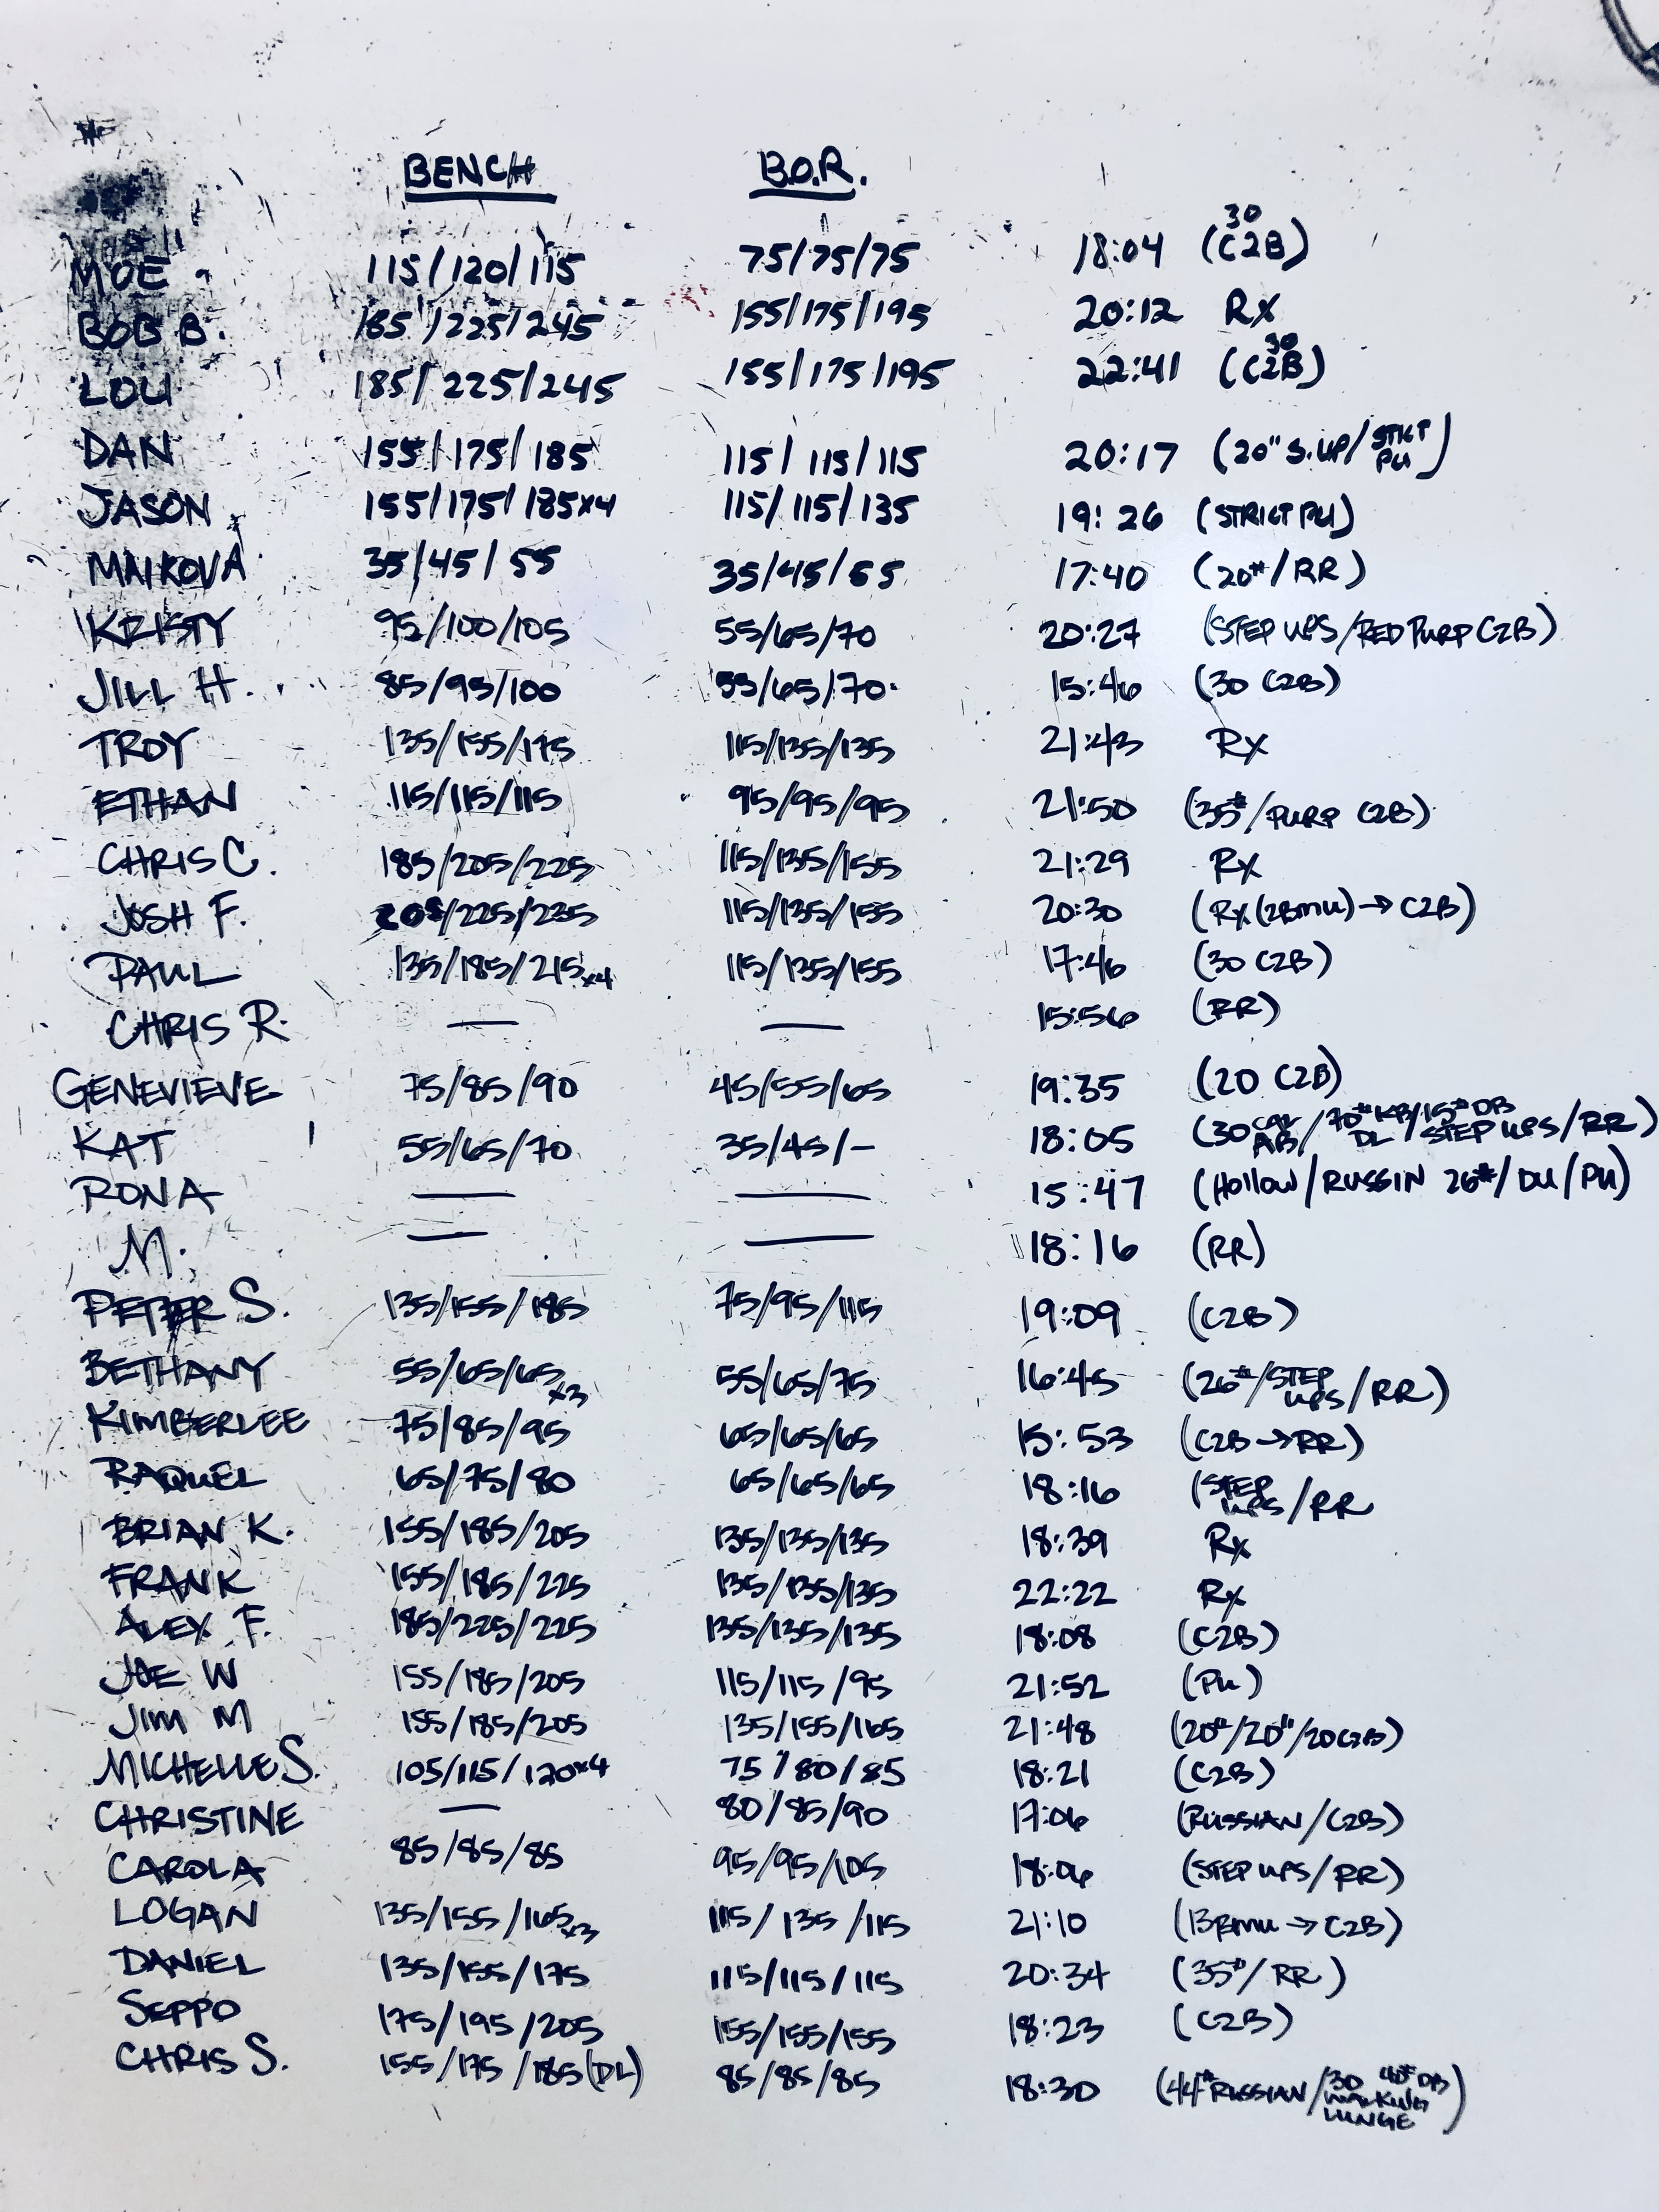 BENCH B.O.R.
MOE 115/120/115 75/75/75 18:04 (30 C2B)
BOB B. 185/225/245 155/175/195 20:12 Rx
LOU 185/225/245 155/175/195 22:41 (30 C2B)
DAN 155/175/185 115/115/115 20:17 (20" S.UP/STRICT PU)
JASON 155/175/185x4 115/115/135 19:26 (STRICT PU)
MAIKOVA 35/45/55 35/45/55 17:40 (20#/RR)
KRISTY 95/100/105 55/65/70 20:27 (STEP UPS/RED PURP C2B)
JILL H. 85/95/100 55/65/70 15:46 (30 C2B)
TROY 135/155/175 115/135/135 21:43 Rx
ETHAN 115/115/115 95/95/95 21:50 (35#/PURP C2B)
CHRIS C. 185/205/225 115/135/155 21:29 Rx
JOSH F. 205/225/235 115/135/155 20:30 (Rx (2BMU) → C2B)
PAUL 135/185/215x4 115/135/155 17:46 (30 C2B)
CHRIS R. — — 15:56 (RR)
GENEVIEVE 75/85/90 45/55/65 19:35 (20 C2B)
KAT 55/65/70 35/45/- 18:05 (30 CAL AB/70# KB DL/15# DB STEP UPS/RR)
RONA — — 15:47 (Hollow/RUSSIN 26#/DU/PU)
M. — — 18:16 (RR)
PETER S. 135/155/185 75/95/115 19:09 (C2B)
BETHANY 55/65/65x3 55/65/75 16:45 (26#/STEP UPS/RR)
KIMBERLEE 75/85/95 65/65/65 15:53 (C2B → RR)
RAQUEL 65/75/80 65/65/65 18:16 (STEP UPS/RR
BRIAN K. 155/185/205 135/135/135 18:39 Rx
FRANK 155/185/225 135/135/135 22:22 Rx
ALEX F. 185/225/225 135/135/135 18:08 (C2B)
JOE W 155/185/205 115/115/95 21:52 (PU)
JIM M 155/185/205 135/155/165 21:48 (20#/20"/20 C2B)
MICHELLE S. 105/115/120x4 75/80/85 18:21 (C2B)
CHRISTINE — 80/85/90 17:06 (RUSSIAN/C2B)
CAROLA 85/85/85 95/95/105 18:06 (STEP UPS/RR)
LOGAN 135/155/165x3 115/135/115 21:10 (13 BMU → C2B)
DANIEL 135/155/175 115/115/115 20:34 (35#/RR)
SEPPO 175/195/205 155/155/155 18:23 (C2B)
CHRIS S. 155/175/185 (DL) 85/85/85 18:30 (44# RUSSIAN/30 40# DB WALKING LUNGE)